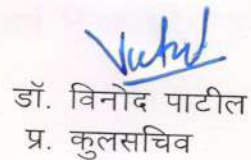 डॉ. विनोद पाटील
प्र. कुलसचिव